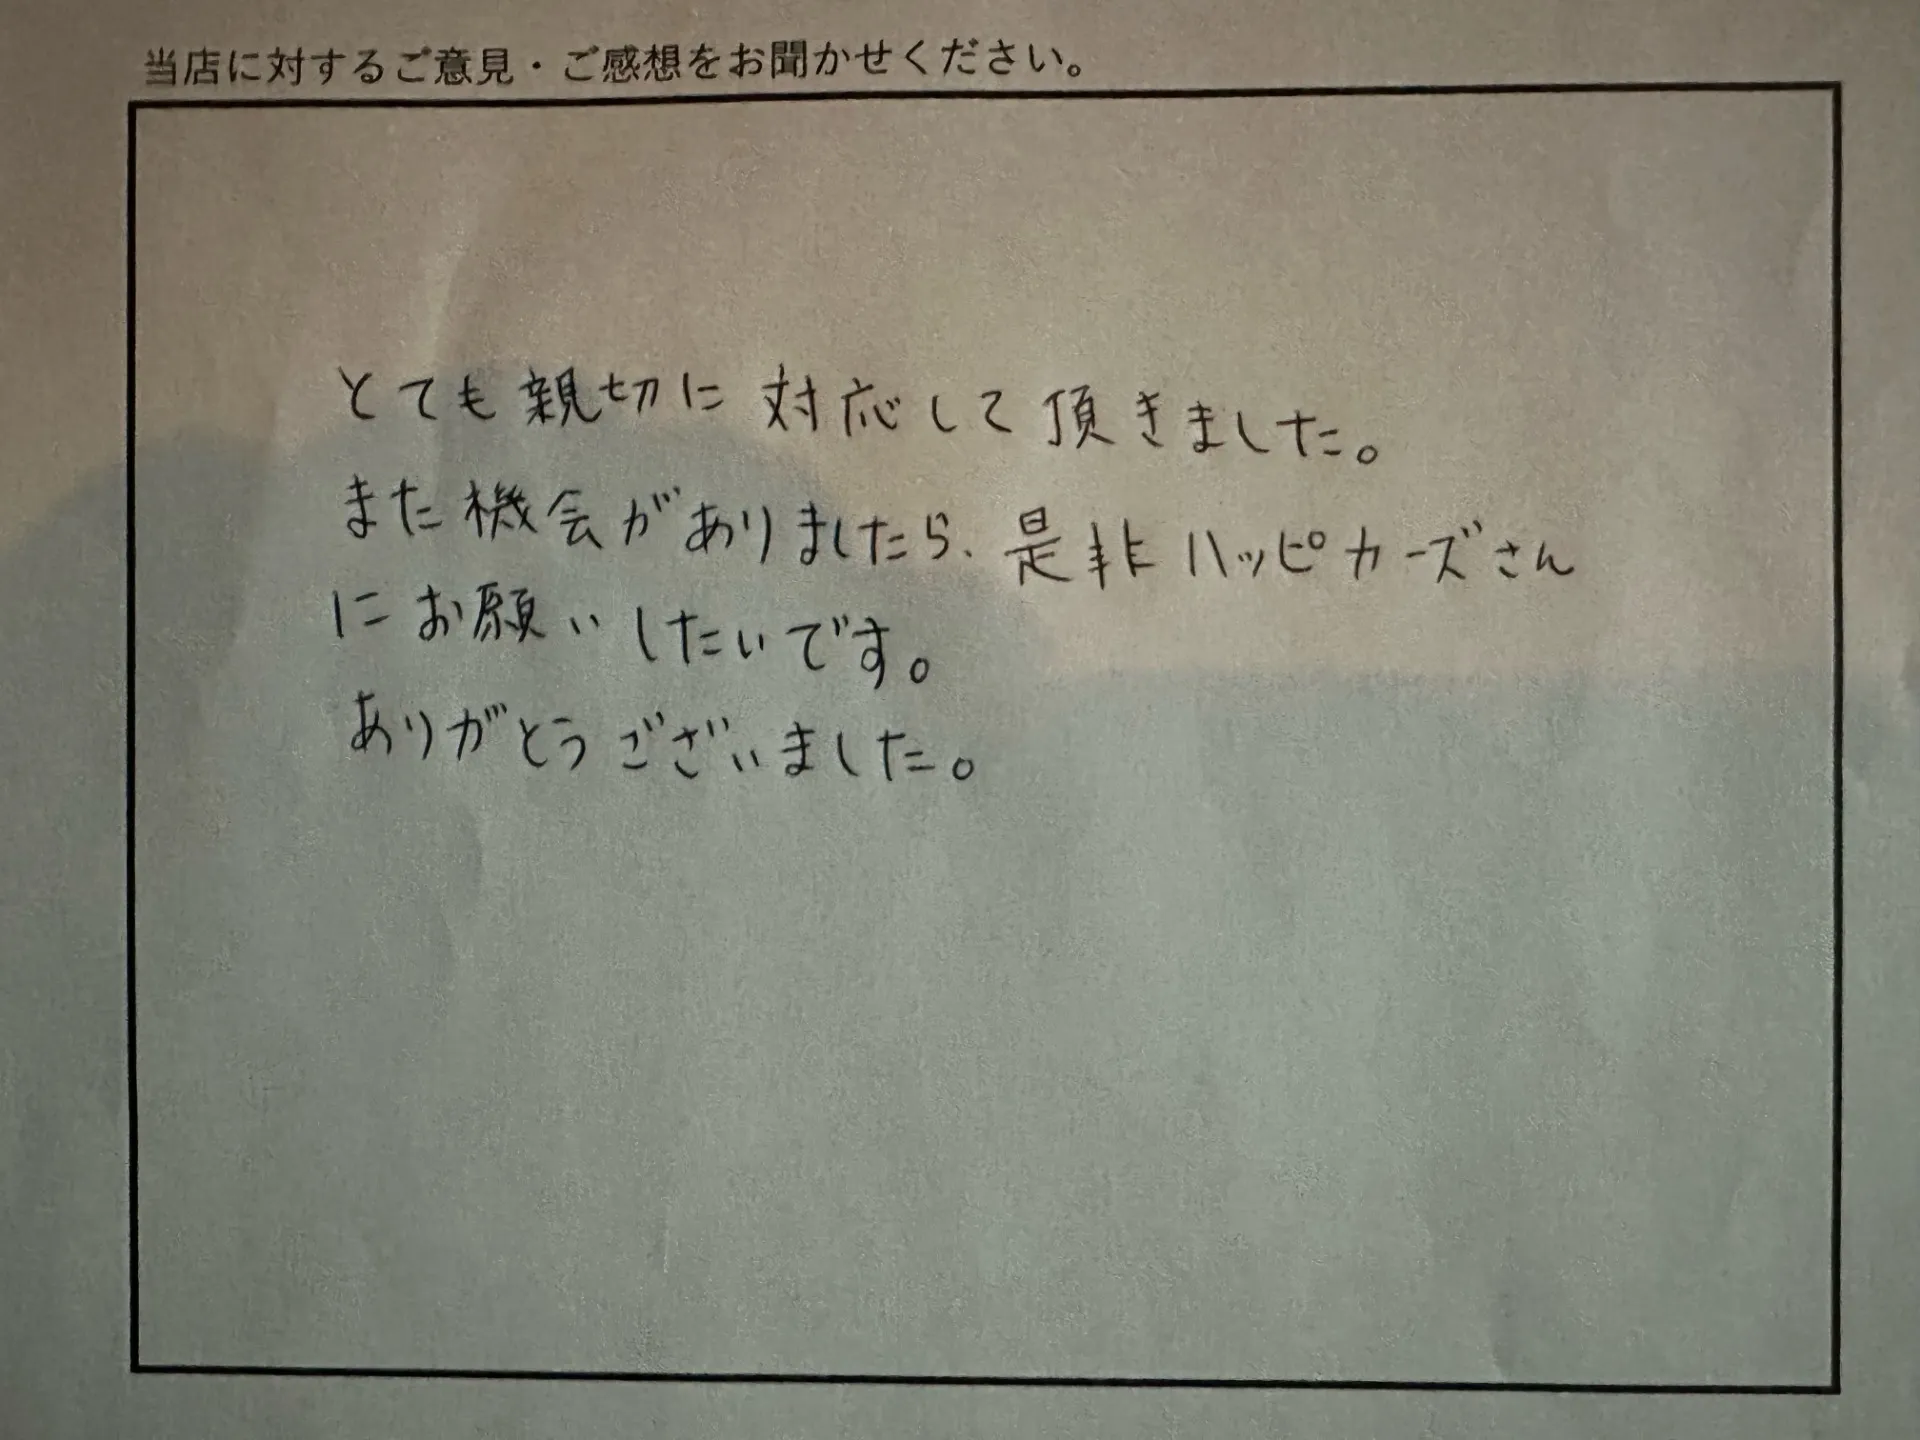 当店に対するご意見・ご感想をお聞かせください。
とても親切に対応して頂きました。
また機会がありましたら、是非ハッピカーズさん
にお願いしたいです。
ありがとうございました。